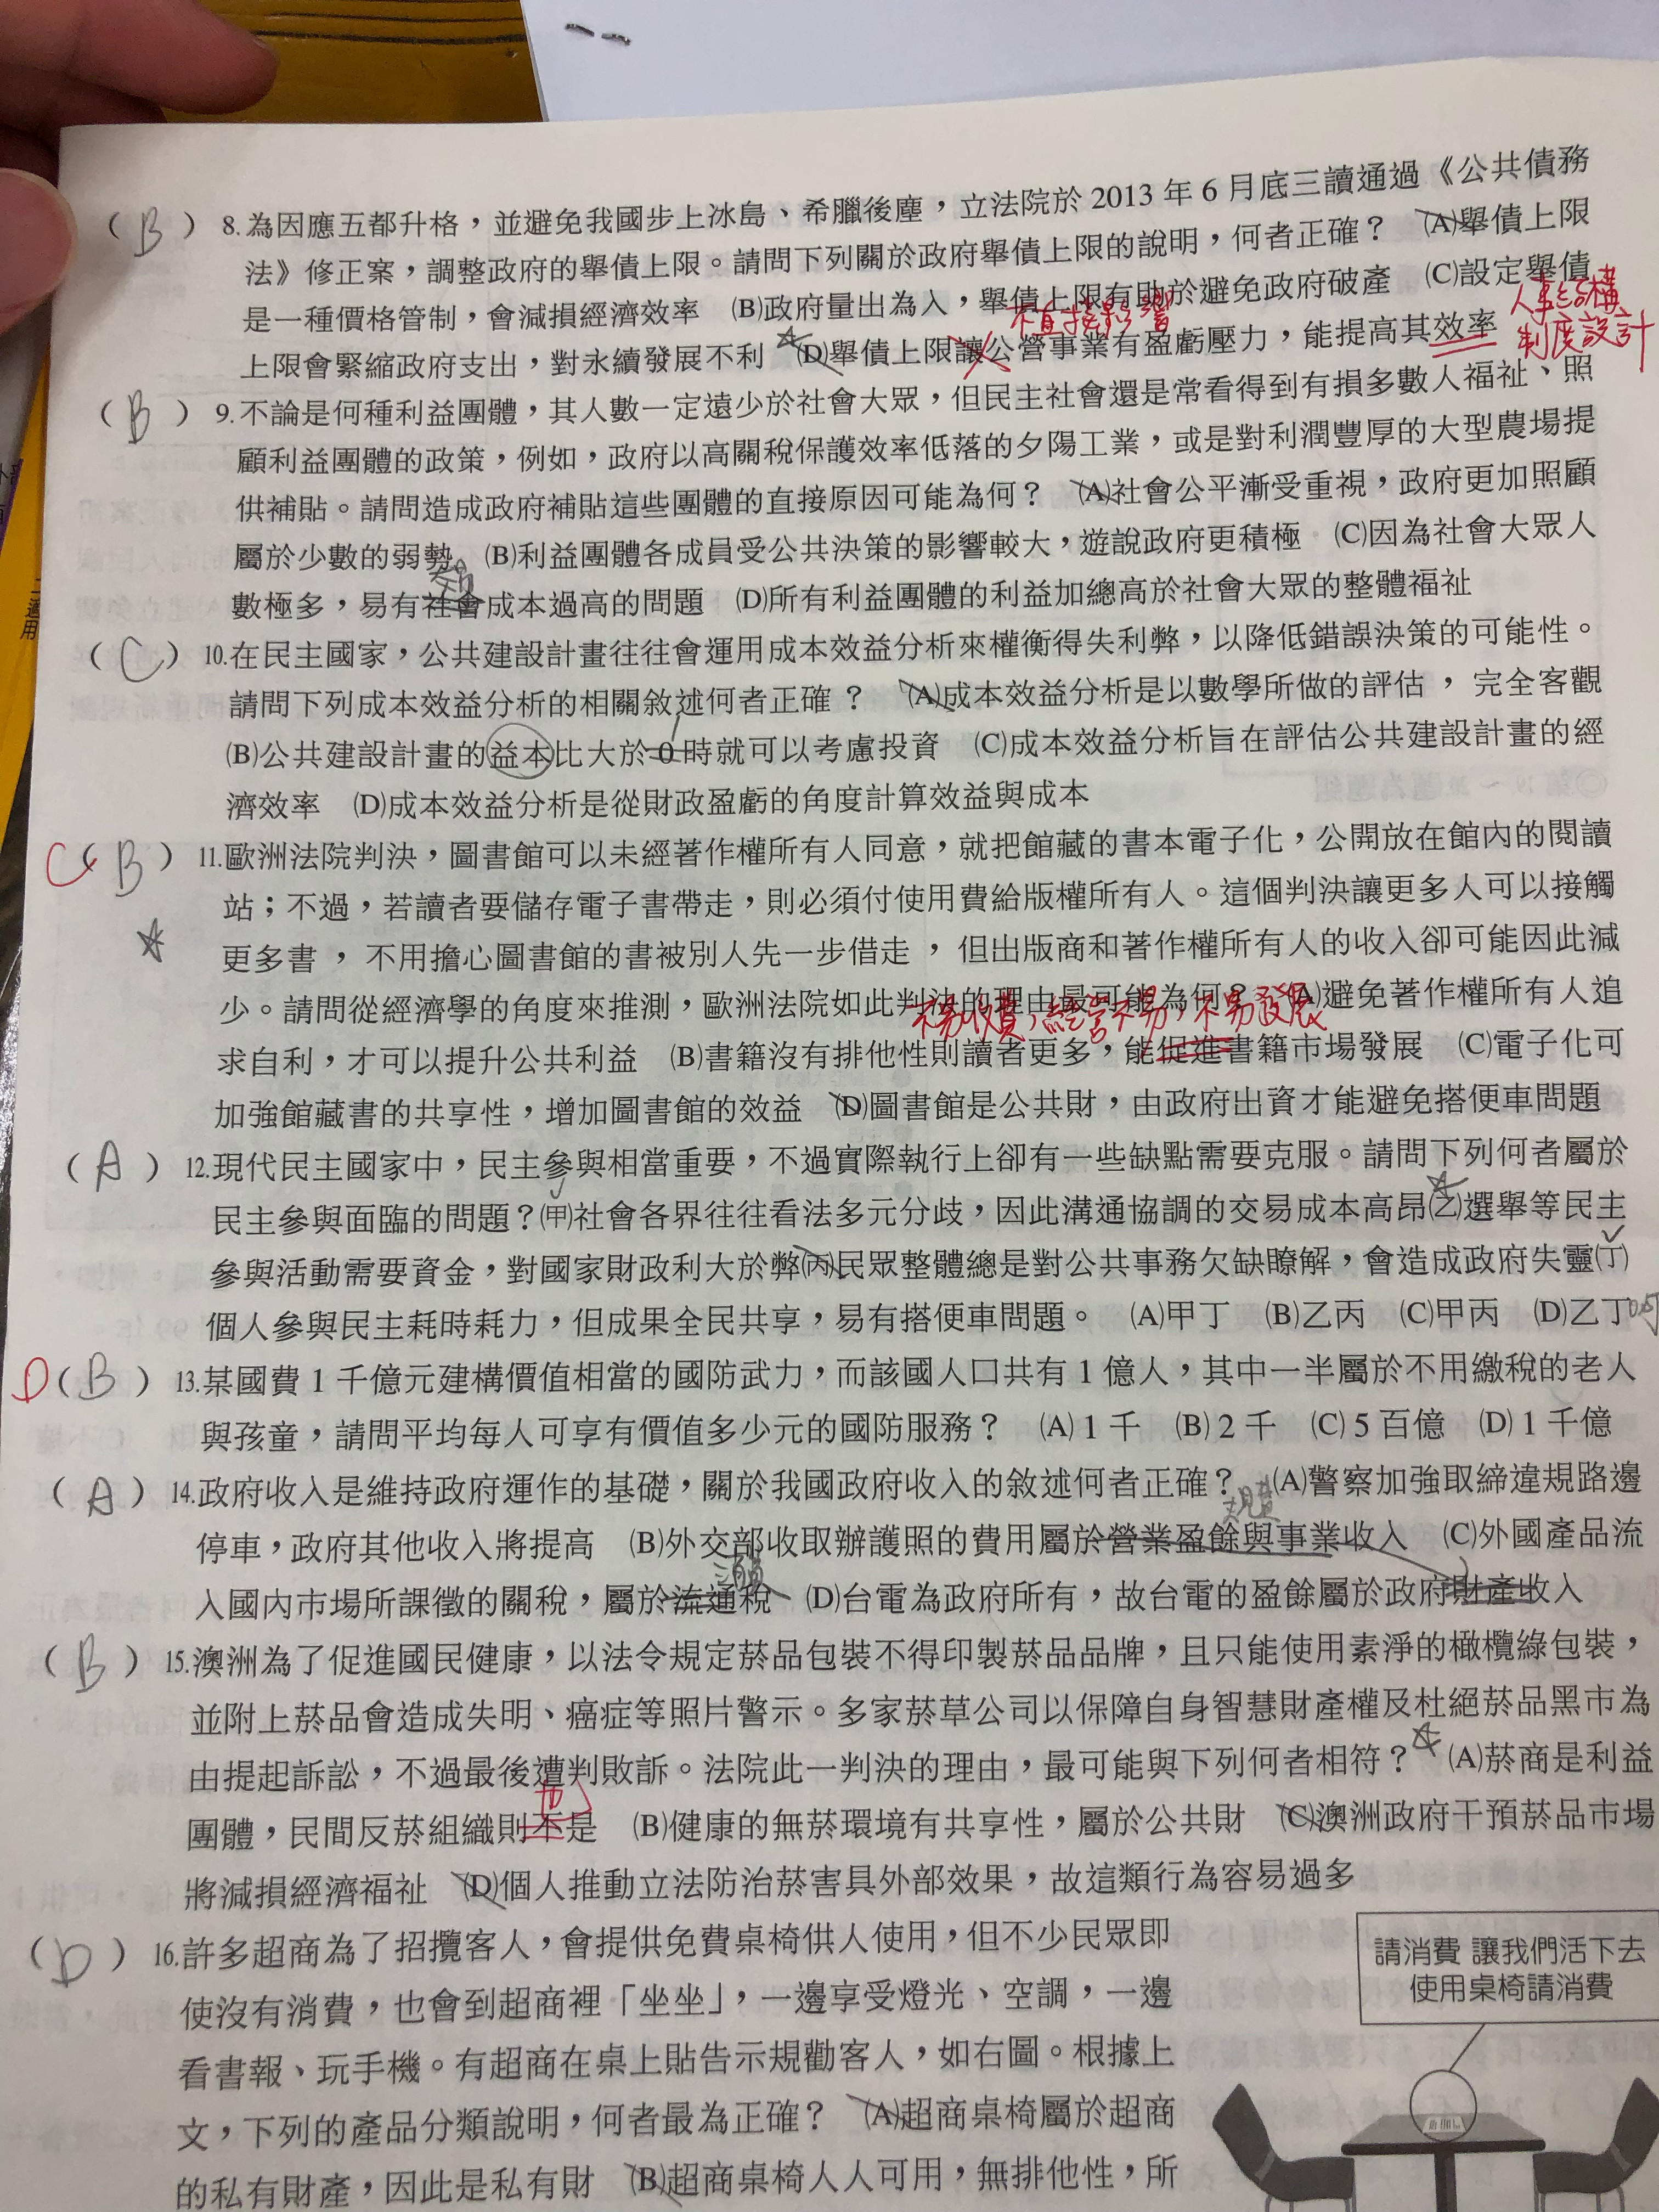 (B) 8.為因應五都升格，並避免我國步上冰島、希臘後塵，立法院於 2013 年 6 月底三讀通過《公共債務
法》修正案，調整政府的舉債上限。請問下列關於政府舉債上限的說明，何者正確？ (A)舉債上限
是一種價格管制，會減損經濟效率 (B)政府量出為入，舉債上限有助於避免政府破產 (C)設定舉債
不直接影響
人事結構
制度設計
上限會緊縮政府支出，對永續發展不利 (D)舉債上限讓公營事業有盈虧壓力，能提高其效率
(B) 9.不論是何種利益團體，其人數一定遠少於社會大眾，但民主社會還是常看得到有損多數人福祉、照
顧利益團體的政策，例如，政府以高關稅保護效率低落的夕陽工業，或是對利潤豐厚的大型農場提
供補貼。請問造成政府補貼這些團體的直接原因可能為何？ (A)社會公平漸受重視，政府更加照顧
屬於少數的弱勢 (B)利益團體各成員受公共決策的影響較大，遊說政府更積極 (C)因為社會大眾人
交易
數極多，易有社會成本過高的問題 (D)所有利益團體的利益加總高於社會大眾的整體福祉
(C) 10.在民主國家，公共建設計畫往往會運用成本效益分析來權衡得失利弊，以降低錯誤決策的可能性。
請問下列成本效益分析的相關敘述何者正確？ (A)成本效益分析是以數學所做的評估，完全客觀
1
(B)公共建設計畫的益本比大於 0 時就可以考慮投資 (C)成本效益分析旨在評估公共建設計畫的經
濟效率 (D)成本效益分析是從財政盈虧的角度計算效益與成本
C (B) 11.歐洲法院判決，圖書館可以未經著作權所有人同意，就把館藏的書本電子化，公開放在館內的閱讀
站；不過，若讀者要儲存電子書帶走，則必須付使用費給版權所有人。這個判決讓更多人可以接觸
更多書，不用擔心圖書館的書被別人先一步借走，但出版商和著作權所有人的收入卻可能因此減
少。請問從經濟學的角度來推測，歐洲法院如此判決的理由最可能為何？ (A)避免著作權所有人追
不易收費，經營不易，不易發展
求自利，才可以提升公共利益 (B)書籍沒有排他性則讀者更多，能促進書籍市場發展 (C)電子化可
加強館藏書的共享性，增加圖書館的效益 (D)圖書館是公共財，由政府出資才能避免搭便車問題
(A) 12.現代民主國家中，民主參與相當重要，不過實際執行上卻有一些缺點需要克服。請問下列何者屬於
民主參與面臨的問題？(甲)社會各界往往看法多元分歧，因此溝通協調的交易成本高昂(乙)選舉等民主
參與活動需要資金，對國家財政利大於弊(丙)民眾整體總是對公共事務欠缺瞭解，會造成政府失靈(丁)
個人參與民主耗時耗力，但成果全民共享，易有搭便車問題。 (A)甲丁 (B)乙丙 (C)甲丙 (D)乙丁
D (B) 13.某國費 1 千億元建構價值相當的國防武力，而該國人口共有 1 億人，其中一半屬於不用繳稅的老人
與孩童，請問平均每人可享有價值多少元的國防服務？ (A) 1 千 (B) 2 千 (C) 5 百億 (D) 1 千億
(A) 14.政府收入是維持政府運作的基礎，關於我國政府收入的敘述何者正確？ (A)警察加強取締違規路邊
規費
停車，政府其他收入將提高 (B)外交部收取辦護照的費用屬於營業盈餘與事業收入 (C)外國產品流
消費
入國內市場所課徵的關稅，屬於流通稅 (D)台電為政府所有，故台電的盈餘屬於政府財產收入
(B) 15.澳洲為了促進國民健康，以法令規定菸品包裝不得印製菸品品牌，且只能使用素淨的橄欖綠包裝，
並附上菸品會造成失明、癌症等照片警示。多家菸草公司以保障自身智慧財產權及杜絕菸品黑市為
由提起訴訟，不過最後遭判敗訴。法院此一判決的理由，最可能與下列何者相符？ (A)菸商是利益
也
團體，民間反菸組織則不是 (B)健康的無菸環境有共享性，屬於公共財 (C)澳洲政府干預菸品市場
將減損經濟福祉 (D)個人推動立法防治菸害具外部效果，故這類行為容易過多
(D) 16.許多超商為了招攬客人，會提供免費桌椅供人使用，但不少民眾即
使沒有消費，也會到超商裡「坐坐」，一邊享受燈光、空調，一邊
看書報、玩手機。有超商在桌上貼告示規勸客人，如右圖。根據上
文，下列的產品分類說明，何者最為正確？ (A)超商桌椅屬於超商
的私有財產，因此是私有財 (B)超商桌椅人人可用，無排他性，所
請消費 讓我們活下去
使用桌椅請消費